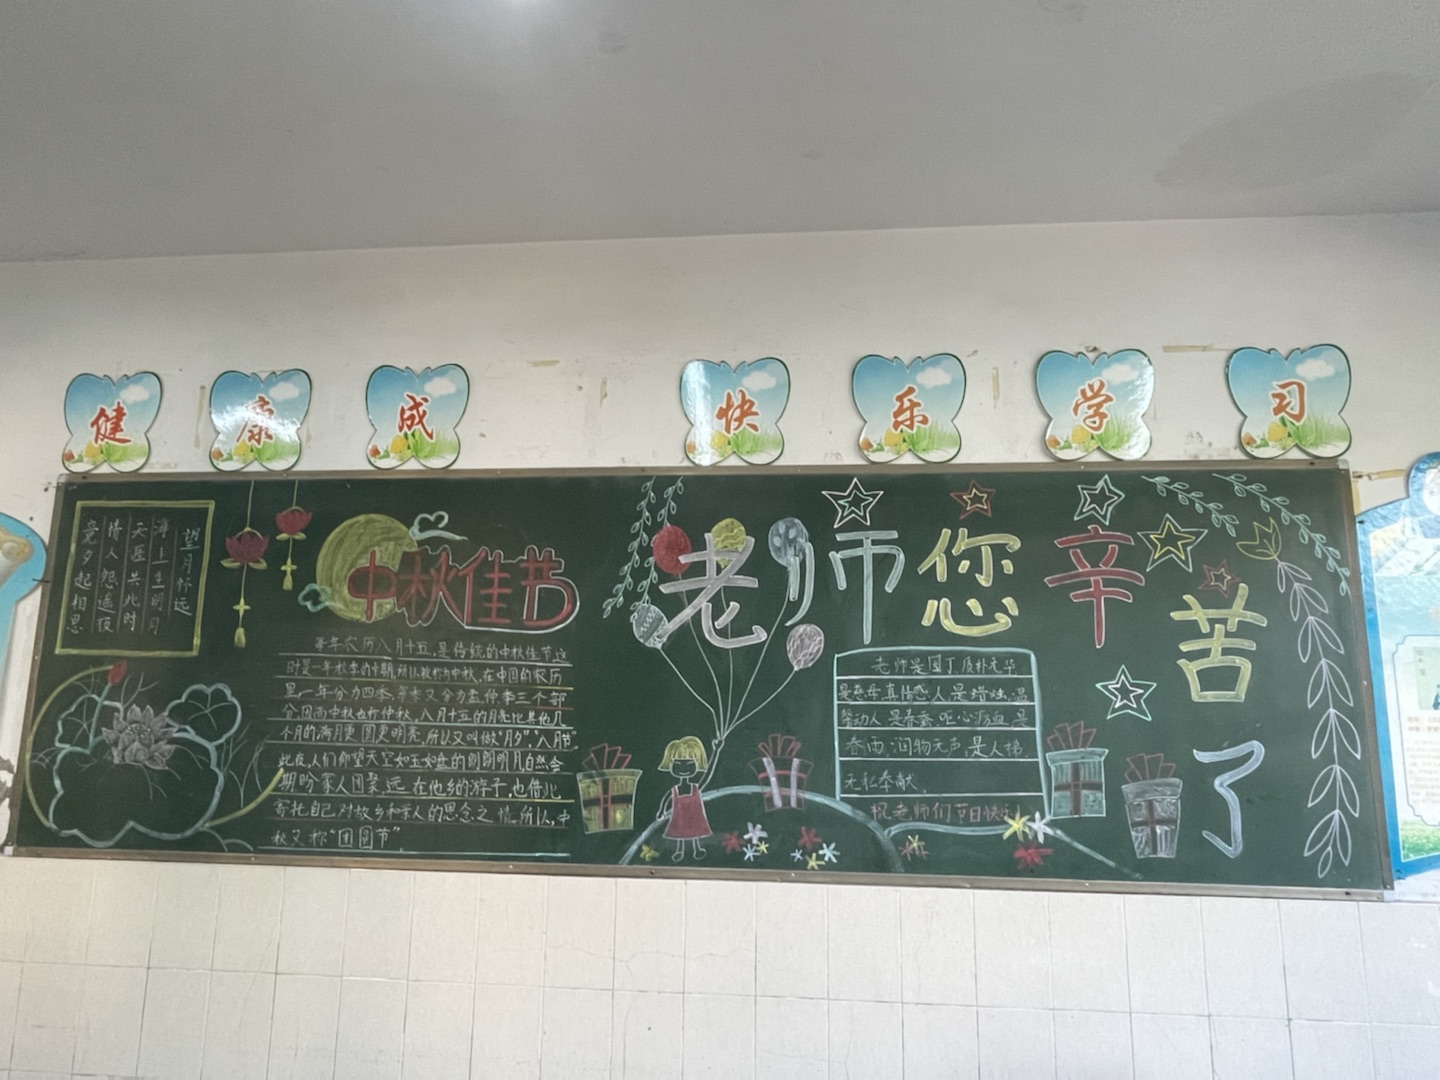 健康成
快乐学习
望月怀远
海上生明月
天涯共此时
情人怨遥夜
竟夕起相思
中秋佳节
每年农历八月十五,是传统的中秋佳节这
时是一年秋季的中期,所以被称为中秋,在中国的农历
里一年分为四季,每季又分为孟仲季三个部
分因而中秋也称仲秋,八月十五的月亮比其他几
个月的满月更圆更明亮,所以又叫做"月夕","八月节"
此夜,人们仰望天空如玉如盘的朗朗明月,自然会
期盼家人团聚,远在他乡的游子,也借此
寄托自己对故乡和亲人的思念之情。所以,中
秋又称"团圆节"。
老师您辛苦了
老师是园丁,质朴无华
是慈母真情感人是蜡烛,温
馨动人是春蚕,呕心沥血是
春雨,润物无声,是人梯,
无私奉献。
祝老师们节日快乐